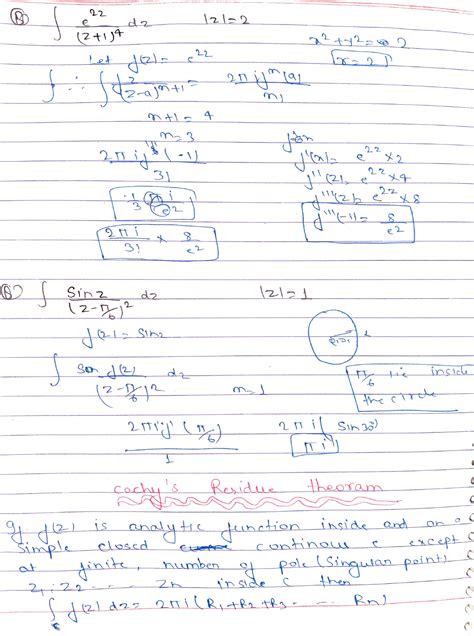 (B) ∫ e^2z / (z+1)^4 dz |z|=2
x²+y²= 2
Let f(z) = e^2z
r=2
∫ ∴ ∫ f(z) / (z-a)^n+1 = 2πi f^n(a) / n!
n+1 = 4
n=3
2πi f'''(-1) / 3!
f'(z)= e^2z×2
f''(z)= e^2z×4
f'''(z)= e^2z×8
f'''(-1)= 8/e²
2πi / 3! × 8/e²
(B) ∫ Sin z / (z-π/6)² dz |z|=1
f(z)=Sinz
∫ f(z) / (z-π/6)² dz n=1
π/6 lie inside
the circle
2πi f'(π/6) / 1
2πi( Sin30°)
πi
cachy's Residue theoram
If f(z) is analytic function inside and on a
Simple closed continous c except
at finite, number of pole (Singular point)
Z1, Z2 ---- Zn inside C then
∫c f(z) dz= 2πi (R1+R2+R3 - --- Rn)